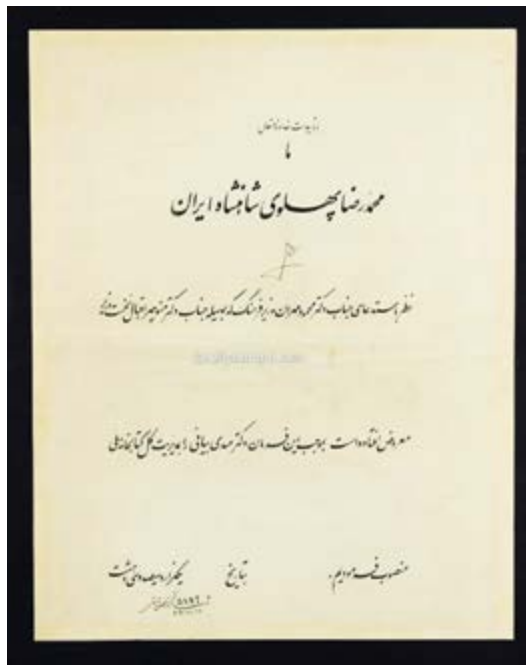 با تاییدات خداوند متعال
ما
محمد رضا پهلوی شاهنشاه ایران
نظر باستدعای جناب دکتر محمود مهران وزیر فرهنگ که بوسیله جناب دکتر منوچهر اقبال نخست وزیر
معروض افتاده است بموجب این فرمان دکتر مهدی بیانی را بمدیریت کل کتابخانه ملی
منصوب فرمودیم. بتاریخ یکهزار و سیصد و سی و هشت